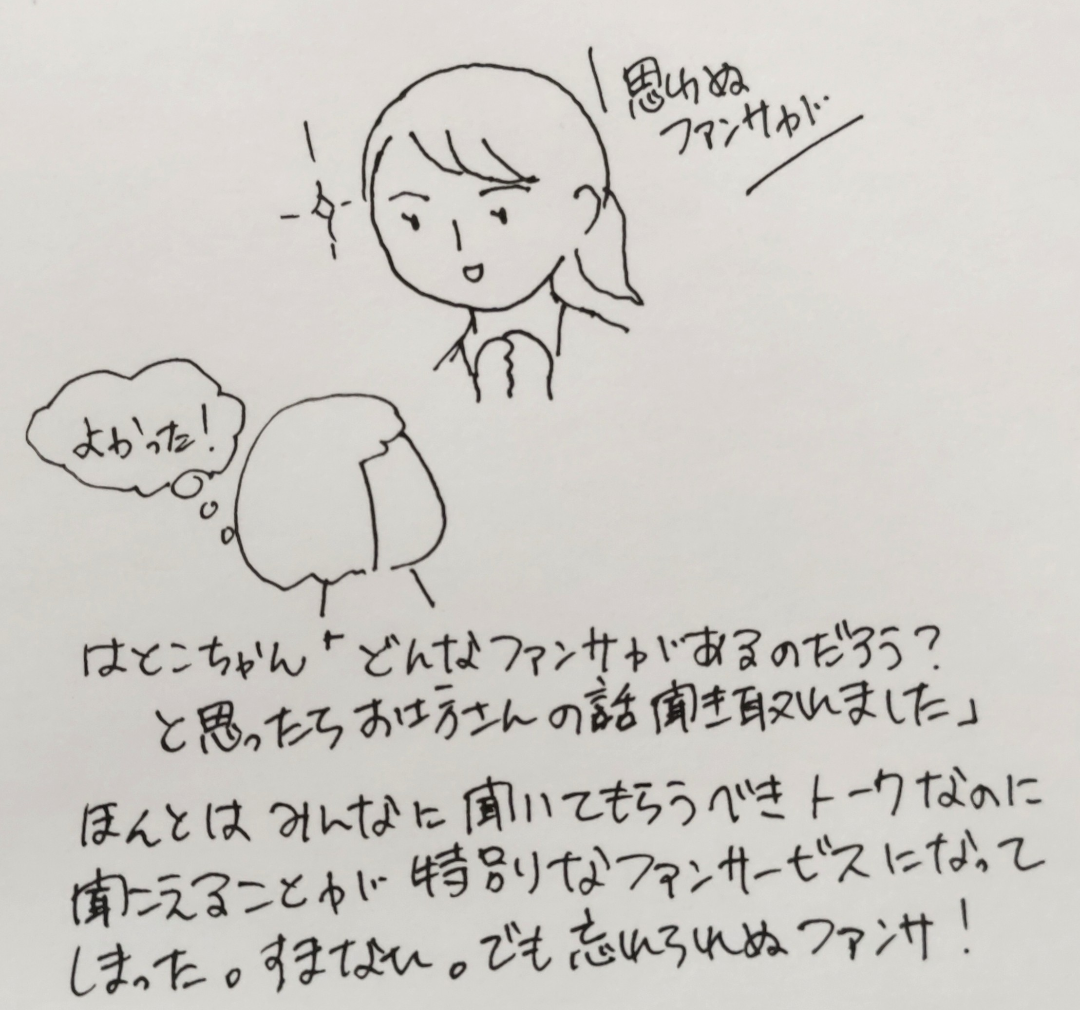 思わぬ
ファンサが
よかった!
はとこちゃん「どんなファンサがあるのだろう?
と思ったらお坊さんの話聞き取れました」
ほんとはみんなに聞いてもらうべきトークなのに
聞こえることが特別なファンサービスになって
しまった。すまない。でも忘れられぬファンサ!